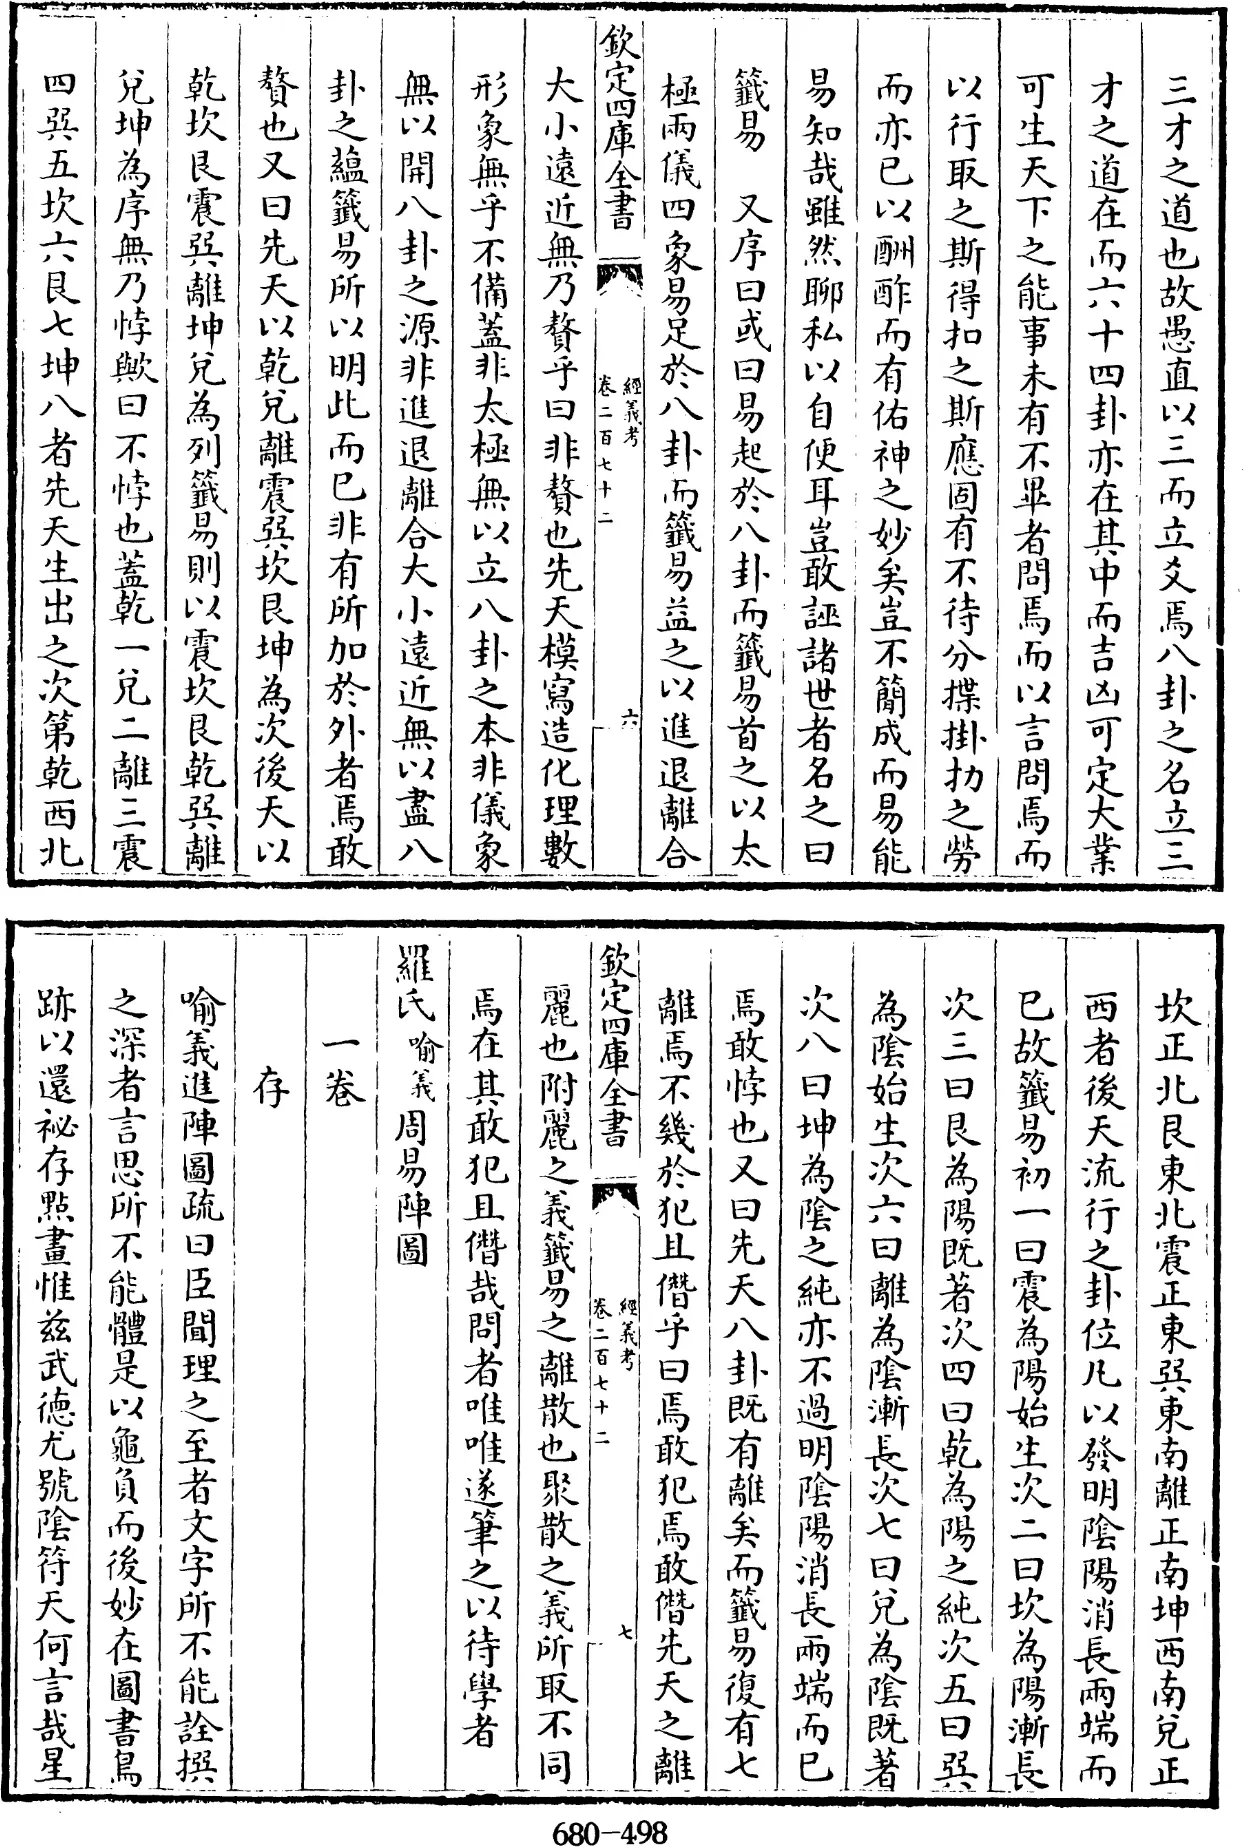 三才之道也故愚直以三而立爻焉八卦之名立三
才之道在而六十四卦亦在其中而吉凶可定大業
可生天下之能事未有不畢者問焉而以言問焉而
以行取之斯得扣之斯應固有不待分揲掛扐之勞
而亦已以酬酢而有佑神之妙矣豈不簡成而易能
易知哉雖然聊私以自便耳豈敢誣諸世者名之曰
籤易　又序曰或曰易起於八卦而籤易首之以太
極兩儀四象易足於八卦而籤易益之以進退離合
欽定四庫全書
經義考
卷二百七十二
六
大小遠近無乃贅乎曰非贅也先天模寫造化理數
形象無乎不備蓋非太極無以立八卦之本非儀象
無以開八卦之源非進退離合大小遠近無以盡八
卦之蘊籤易所以明此而已非有所加於外者焉敢
贅也又曰先天以乾兌離震巽坎艮坤為次後天以
乾坎艮震巽離坤兌為列籤易則以震坎艮乾巽離
兌坤為序無乃悖歟曰不悖也蓋乾一兌二離三震
四巽五坎六艮七坤八者先天生出之次第乾西北
坎正北艮東北震正東巽東南離正南坤西南兌正
西者後天流行之卦位凡以發明陰陽消長兩端而
已故籤易初一曰震為陽始生次二曰坎為陽漸長
次三曰艮為陽既著次四曰乾為陽之純次五曰巽
為陰始生次六曰離為陰漸長次七曰兌為陰既著
次八曰坤為陰之純亦不過明陰陽消長兩端而已
焉敢悖也又曰先天八卦既有離矣而籤易復有七
離焉不幾於犯且僭乎曰焉敢犯焉敢僭先天之離
欽定四庫全書
經義考
卷二百七十二
七
麗也附麗之義籤易之離散也聚散之義所取不同
焉在其敢犯且僭哉問者唯唯遂筆之以待學者
羅氏喻義周易陣圖
一卷
存
喻義進陣圖疏曰臣聞理之至者文字所不能詮撰
之深者言思所不能體是以龜負而後妙在圖書鳥
跡以還祕存點畫惟茲武德尤號陰符天何言哉星
680-498